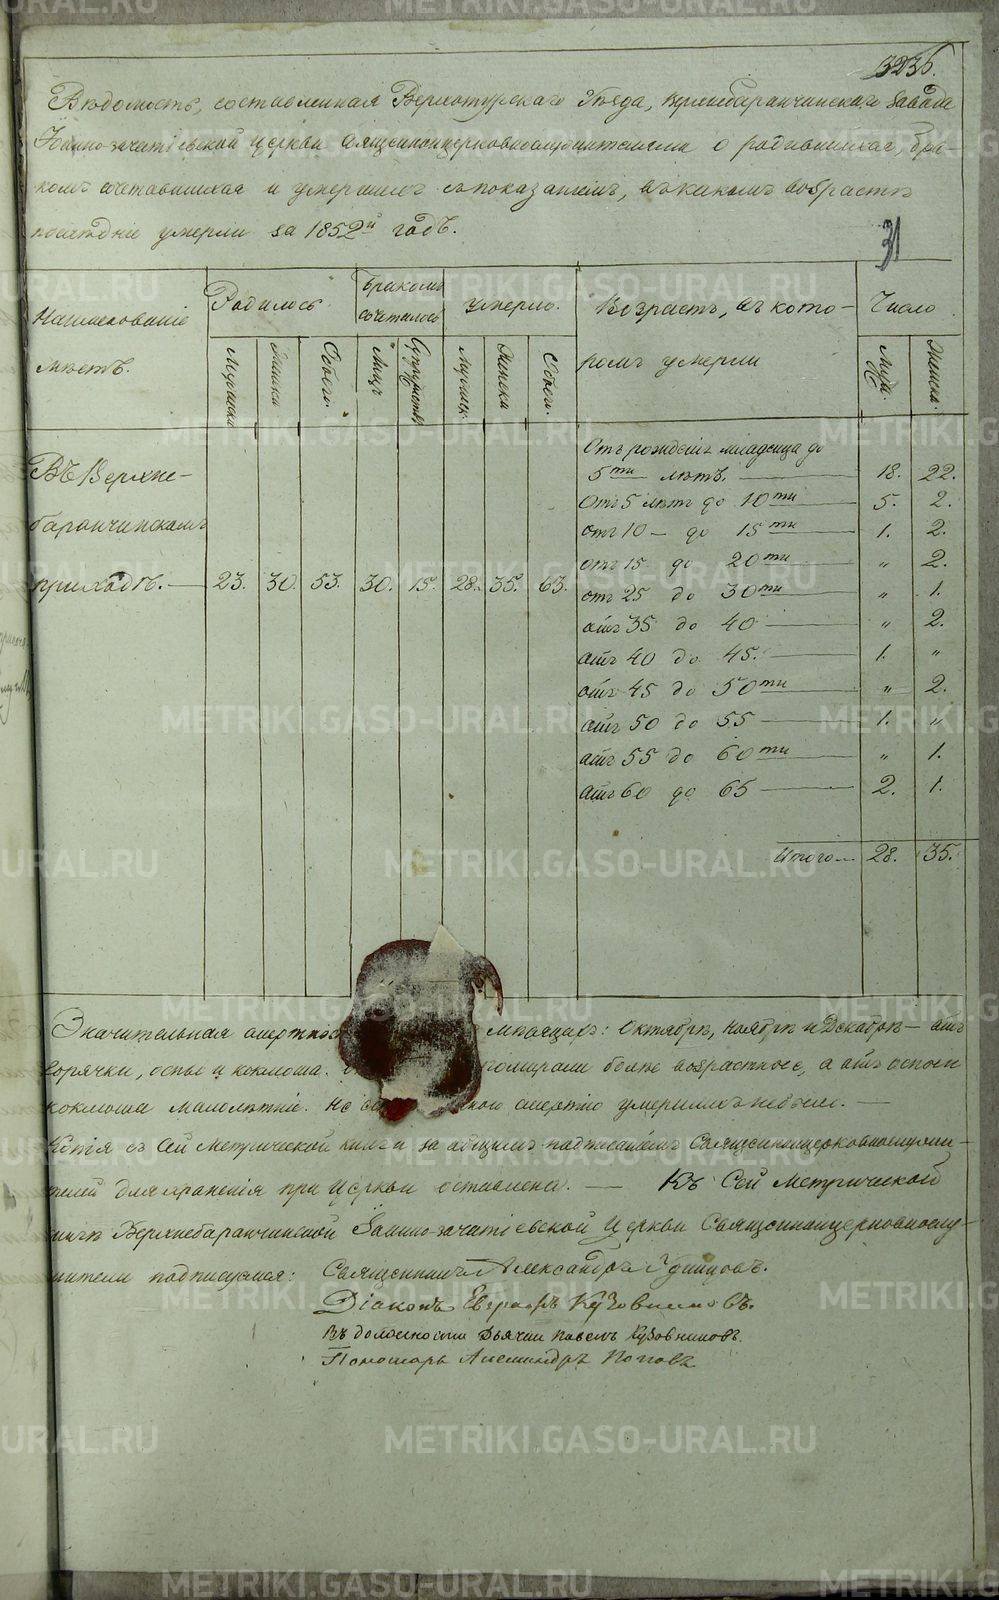 3236.
Вѣдомость, составленная Верхотурскаго Уѣзда, Верхнебаранчинскаго завода
Іоанно-зачатіевской церкви священноцерковнослужителями о родившихся, бра-
комъ сочетавшихся и умершихъ съ показаніемъ, въ какомъ возрастѣ
послѣдніе умерли за 1852й годъ.
31
Наименованіе мѣстъ.
Родилось.
Бракомъ сочеталось
умерло.
Возрастъ, въ кото-
ромъ умерли
Число
Мужска
Женска
Обоего.
Лицъ
Супружествъ
Мужеск.
Женска
Обоег.
Муж.
Женска.
Отъ рожденія младенца до
5ти лѣтъ. 18. 22.
Отъ 5 лѣтъ до 10ти 5. 2.
отъ 10 — до 15ти 1. 2.
отъ 15 до 20ти „ 2.
отъ 25 до 30ти „ 1.
отъ 35 до 40 „ 2.
отъ 40 до 45. 1. „
отъ 45 до 50ти „ 2.
отъ 50 до 55 1. „
отъ 55 до 60ти „ 1.
отъ 60 до 65 2. 1.
Итого 28. 35.
Въ Верхне-
баранчинскомъ
приходѣ. — 23. 30. 53. 30. 15. 28. 35. 63.
Значительная смертность мѣсяцахъ: Октябрѣ, Ноябрѣ и Декабрѣ — отъ
горячки, оспы и коклюша. помирали болѣе возрастные, а отъ оспы и
коклюша малолѣтніе. смертію умершихъ небыло. —
Копія съ сей Метрической книги за общимъ подписомъ Священноцерковнослужи-
телей для храненія при церкви оставлена. — Къ Сей Метрической
книгѣ Верхнебаранчинской Іоанно-зачатіевской Церкви Священноцерковнослу-
жители подписуемся: Священникъ Александръ Удинцовъ.
Діаконъ Евграфъ Кузовниковъ.
Въ должности Дьячка Павелъ Кузовниковъ.
Пономарь Александръ Поповъ
METRIKI.GASO-URAL.RU